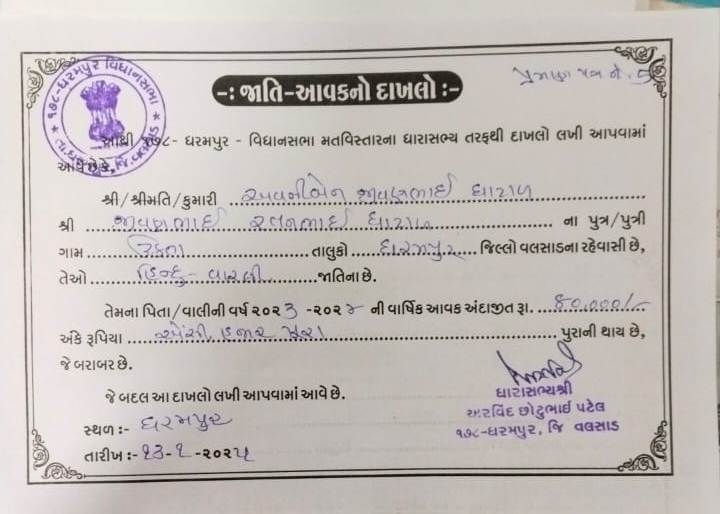 ૧૭૮-ધરમપુર વિધાનસભા
જિ. વલસાડ
-: જાતિ-આવકનો દાખલો :-
પ્રમાણ પત્ર નં. ૬
આથી ૧૭૮- ધરમપુર - વિધાનસભા મતવિસ્તારના ધારાસભ્ય તરફથી દાખલો લખી આપવામાં
આવે છે કે,
શ્રી/શ્રીમતિ/કુમારી અવનીબેન જીવણભાઈ ઘાટાળ
શ્રી જીવણભાઈ રતનભાઈ ઘાટાળ ના પુત્ર/પુત્રી
ગામ તાલુકો ધરમપુર જિલ્લો વલસાડના રહેવાસી છે,
તેઓ હિન્દુ - વારલી જાતિના છે.
તેમના પિતા/વાલીની વર્ષ ૨૦૨૩ -૨૦૨૪ ની વાર્ષિક આવક અંદાજીત રૂા. ૮૦,૦૦૦/-
અંકે રૂપિયા એંસી હજાર પુરા પુરાની થાય છે,
જે બરાબર છે.
જે બદલ આ દાખલો લખી આપવામાં આવે છે.
સ્થળ :- ધરમપુર
તારીખ :- ૧૩-૧-૨૦૨૫
ધારાસભ્યશ્રી
અરવિંદ છોટુભાઈ પટેલ
૧૭૮-ધરમપુર, જિ વલસાડ